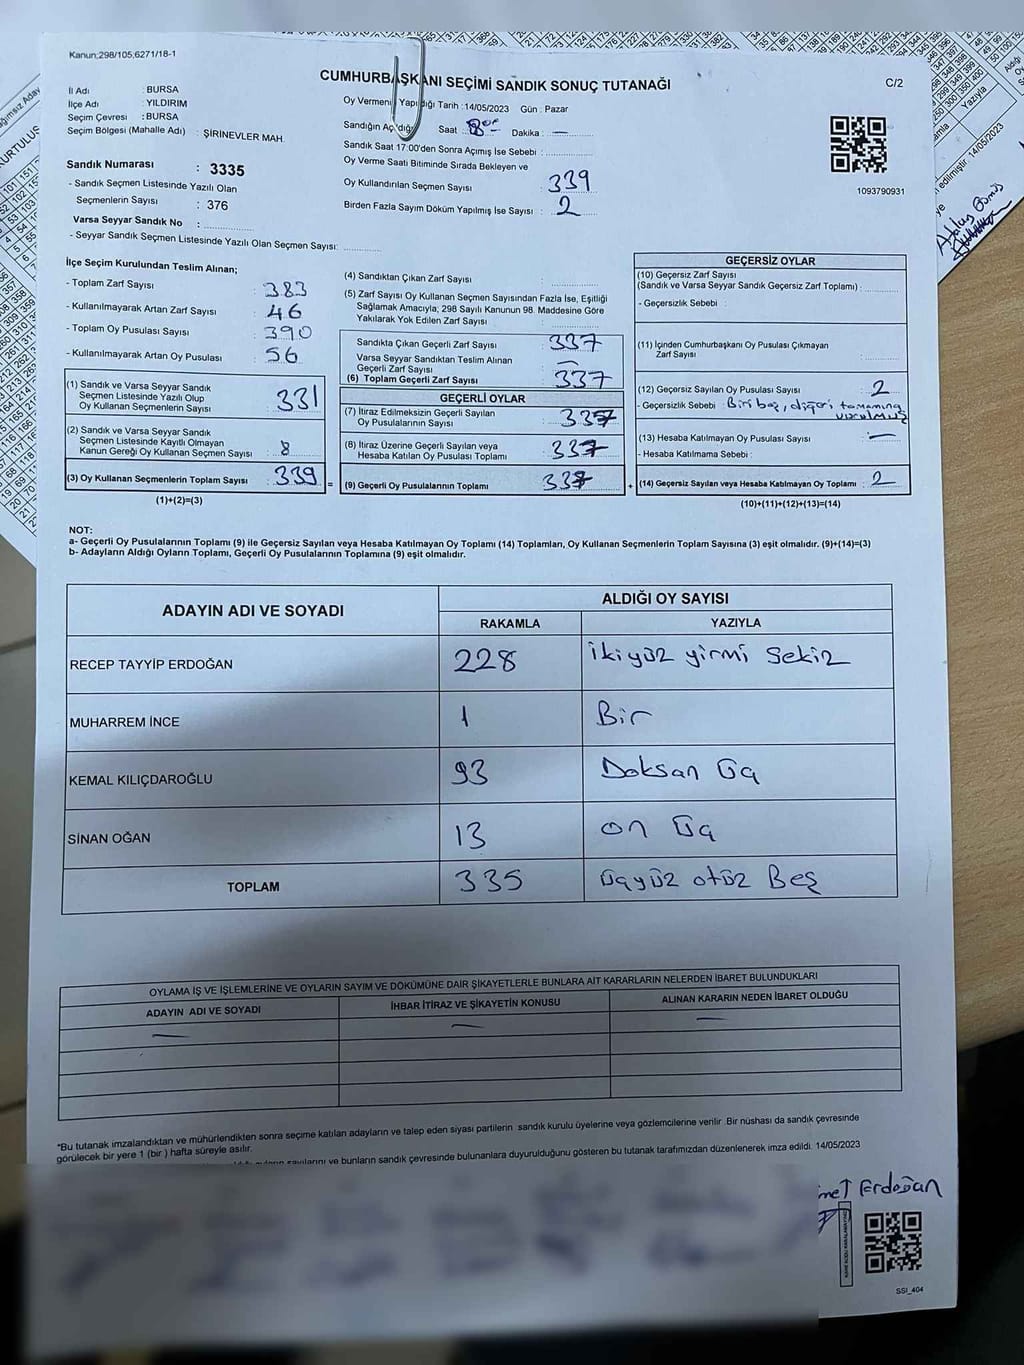 Kanun:298/105;6271/18-1
CUMHURBAŞKANI SEÇİMİ SANDIK SONUÇ TUTANAĞI
C/2
İl Adı : BURSA
İlçe Adı : YILDIRIM
Seçim Çevresi : BURSA
Seçim Bölgesi (Mahalle Adı) : ŞİRİNEVLER MAH.
Oy Vermenin Yapıldığı Tarih :14/05/2023 Gün : Pazar
Sandığın Açıldığı Saat : 8°° Dakika : —
Sandık Saat 17:00'den Sonra Açımış İse Sebebi :
Oy Verme Saati Bitiminde Sırada Bekleyen ve
Oy Kullandırılan Seçmen Sayısı : 339
Birden Fazla Sayım Döküm Yapılmış İse Sayısı : 2
1093790931
Sandık Numarası : 3335
- Sandık Seçmen Listesinde Yazılı Olan
Seçmenlerin Sayısı : 376
Varsa Seyyar Sandık No :
- Seyyar Sandık Seçmen Listesinde Yazılı Olan Seçmen Sayısı:
İlçe Seçim Kurulundan Teslim Alınan;
- Toplam Zarf Sayısı : 383
- Kullanılmayarak Artan Zarf Sayısı : 46
- Toplam Oy Pusulası Sayısı : 390
- Kullanılmayarak Artan Oy Pusulası : 56
(1) Sandık ve Varsa Seyyar Sandık
Seçmen Listesinde Yazılı Olup
Oy Kullanan Seçmenlerin Sayısı : 331
(2) Sandık ve Varsa Seyyar Sandık
Seçmen Listesinde Kayıtlı Olmayan
Kanun Gereği Oy Kullanan Seçmen Sayısı : 8
(3) Oy Kullanan Seçmenlerin Toplam Sayısı : 339
(1)+(2)=(3)
(4) Sandıktan Çıkan Zarf Sayısı :
(5) Zarf Sayısı Oy Kullanan Seçmen Sayısından Fazla İse, Eşitliği
Sağlamak Amacıyla; 298 Sayılı Kanunun 98. Maddesine Göre
Yakılarak Yok Edilen Zarf Sayısı :
Sandıkta Çıkan Geçerli Zarf Sayısı : 337
Varsa Seyyar Sandıktan Teslim Alınan
Geçerli Zarf Sayısı : —
(6) Toplam Geçerli Zarf Sayısı : 337
GEÇERLİ OYLAR
(7) İtiraz Edilmeksizin Geçerli Sayılan
Oy Pusulalarının Sayısı : 337
(8) İtiraz Üzerine Geçerli Sayılan veya
Hesaba Katılan Oy Pusulaları Toplamı : 337
(9) Geçerli Oy Pusulalarının Toplamı : 337
=
+
GEÇERSİZ OYLAR
(10) Geçersiz Zarf Sayısı
(Sandık ve Varsa Seyyar Sandık Geçersiz Zarf Toplamı) :
- Geçersizlik Sebebi :
(11) İçinden Cumhurbaşkanı Oy Pusulası Çıkmayan
Zarf Sayısı :
(12) Geçersiz Sayılan Oy Pusulası Sayısı : 2
- Geçersizlik Sebebi : Biri boş, diğeri tamamına
vurulmuş
(13) Hesaba Katılmayan Oy Pusulası Sayısı : —
- Hesaba Katılmama Sebebi :
(14) Geçersiz Sayılan veya Hesaba Katılmayan Oy Toplamı : 2
(10)+(11)+(12)+(13)=(14)
NOT:
a- Geçerli Oy Pusulalarının Toplamı (9) ile Geçersiz Sayılan veya Hesaba Katılmayan Oy Toplamı (14) Toplamları, Oy Kullanan Seçmenlerin Toplam Sayısına (3) eşit olmalıdır. (9)+(14)=(3)
b- Adayların Aldığı Oyların Toplamı, Geçerli Oy Pusulalarının Toplamına (9) eşit olmalıdır.
ADAYIN ADI VE SOYADI
ALDIĞI OY SAYISI
RAKAMLA YAZIYLA
RECEP TAYYİP ERDOĞAN 228 ikiyüz yirmi sekiz
MUHARREM İNCE 1 Bir
KEMAL KILIÇDAROĞLU 93 Doksan Üç
SİNAN OĞAN 13 on Üç
TOPLAM 335 üçyüz otüz Beş
OYLAMA İŞ VE İŞLEMLERİNE VE OYLARIN SAYIM VE DÖKÜMÜNE DAİR ŞİKAYETLERLE BUNLARA AİT KARARLARIN NELERDEN İBARET BULUNDUKLARI
ADAYIN ADI VE SOYADI İHBAR İTİRAZ VE ŞİKAYETİN KONUSU ALINAN KARARIN NEDEN İBARET OLDUĞU
— — —
*Bu tutanak imzalandıktan ve mühürlendikten sonra seçime katılan adayların ve talep eden siyasi partilerin sandık kurulu üyelerine veya gözlemcilerine verilir. Bir nüshası da sandık çevresinde
görülecek bir yere 1 (bir ) hafta süreyle asılır.
ve bunların sandık çevresinde bulunanlara duyurulduğunu gösteren bu tutanak tarafımızdan düzenlenerek imza edildi. 14/05/2023
Erdoğan
SSI_404